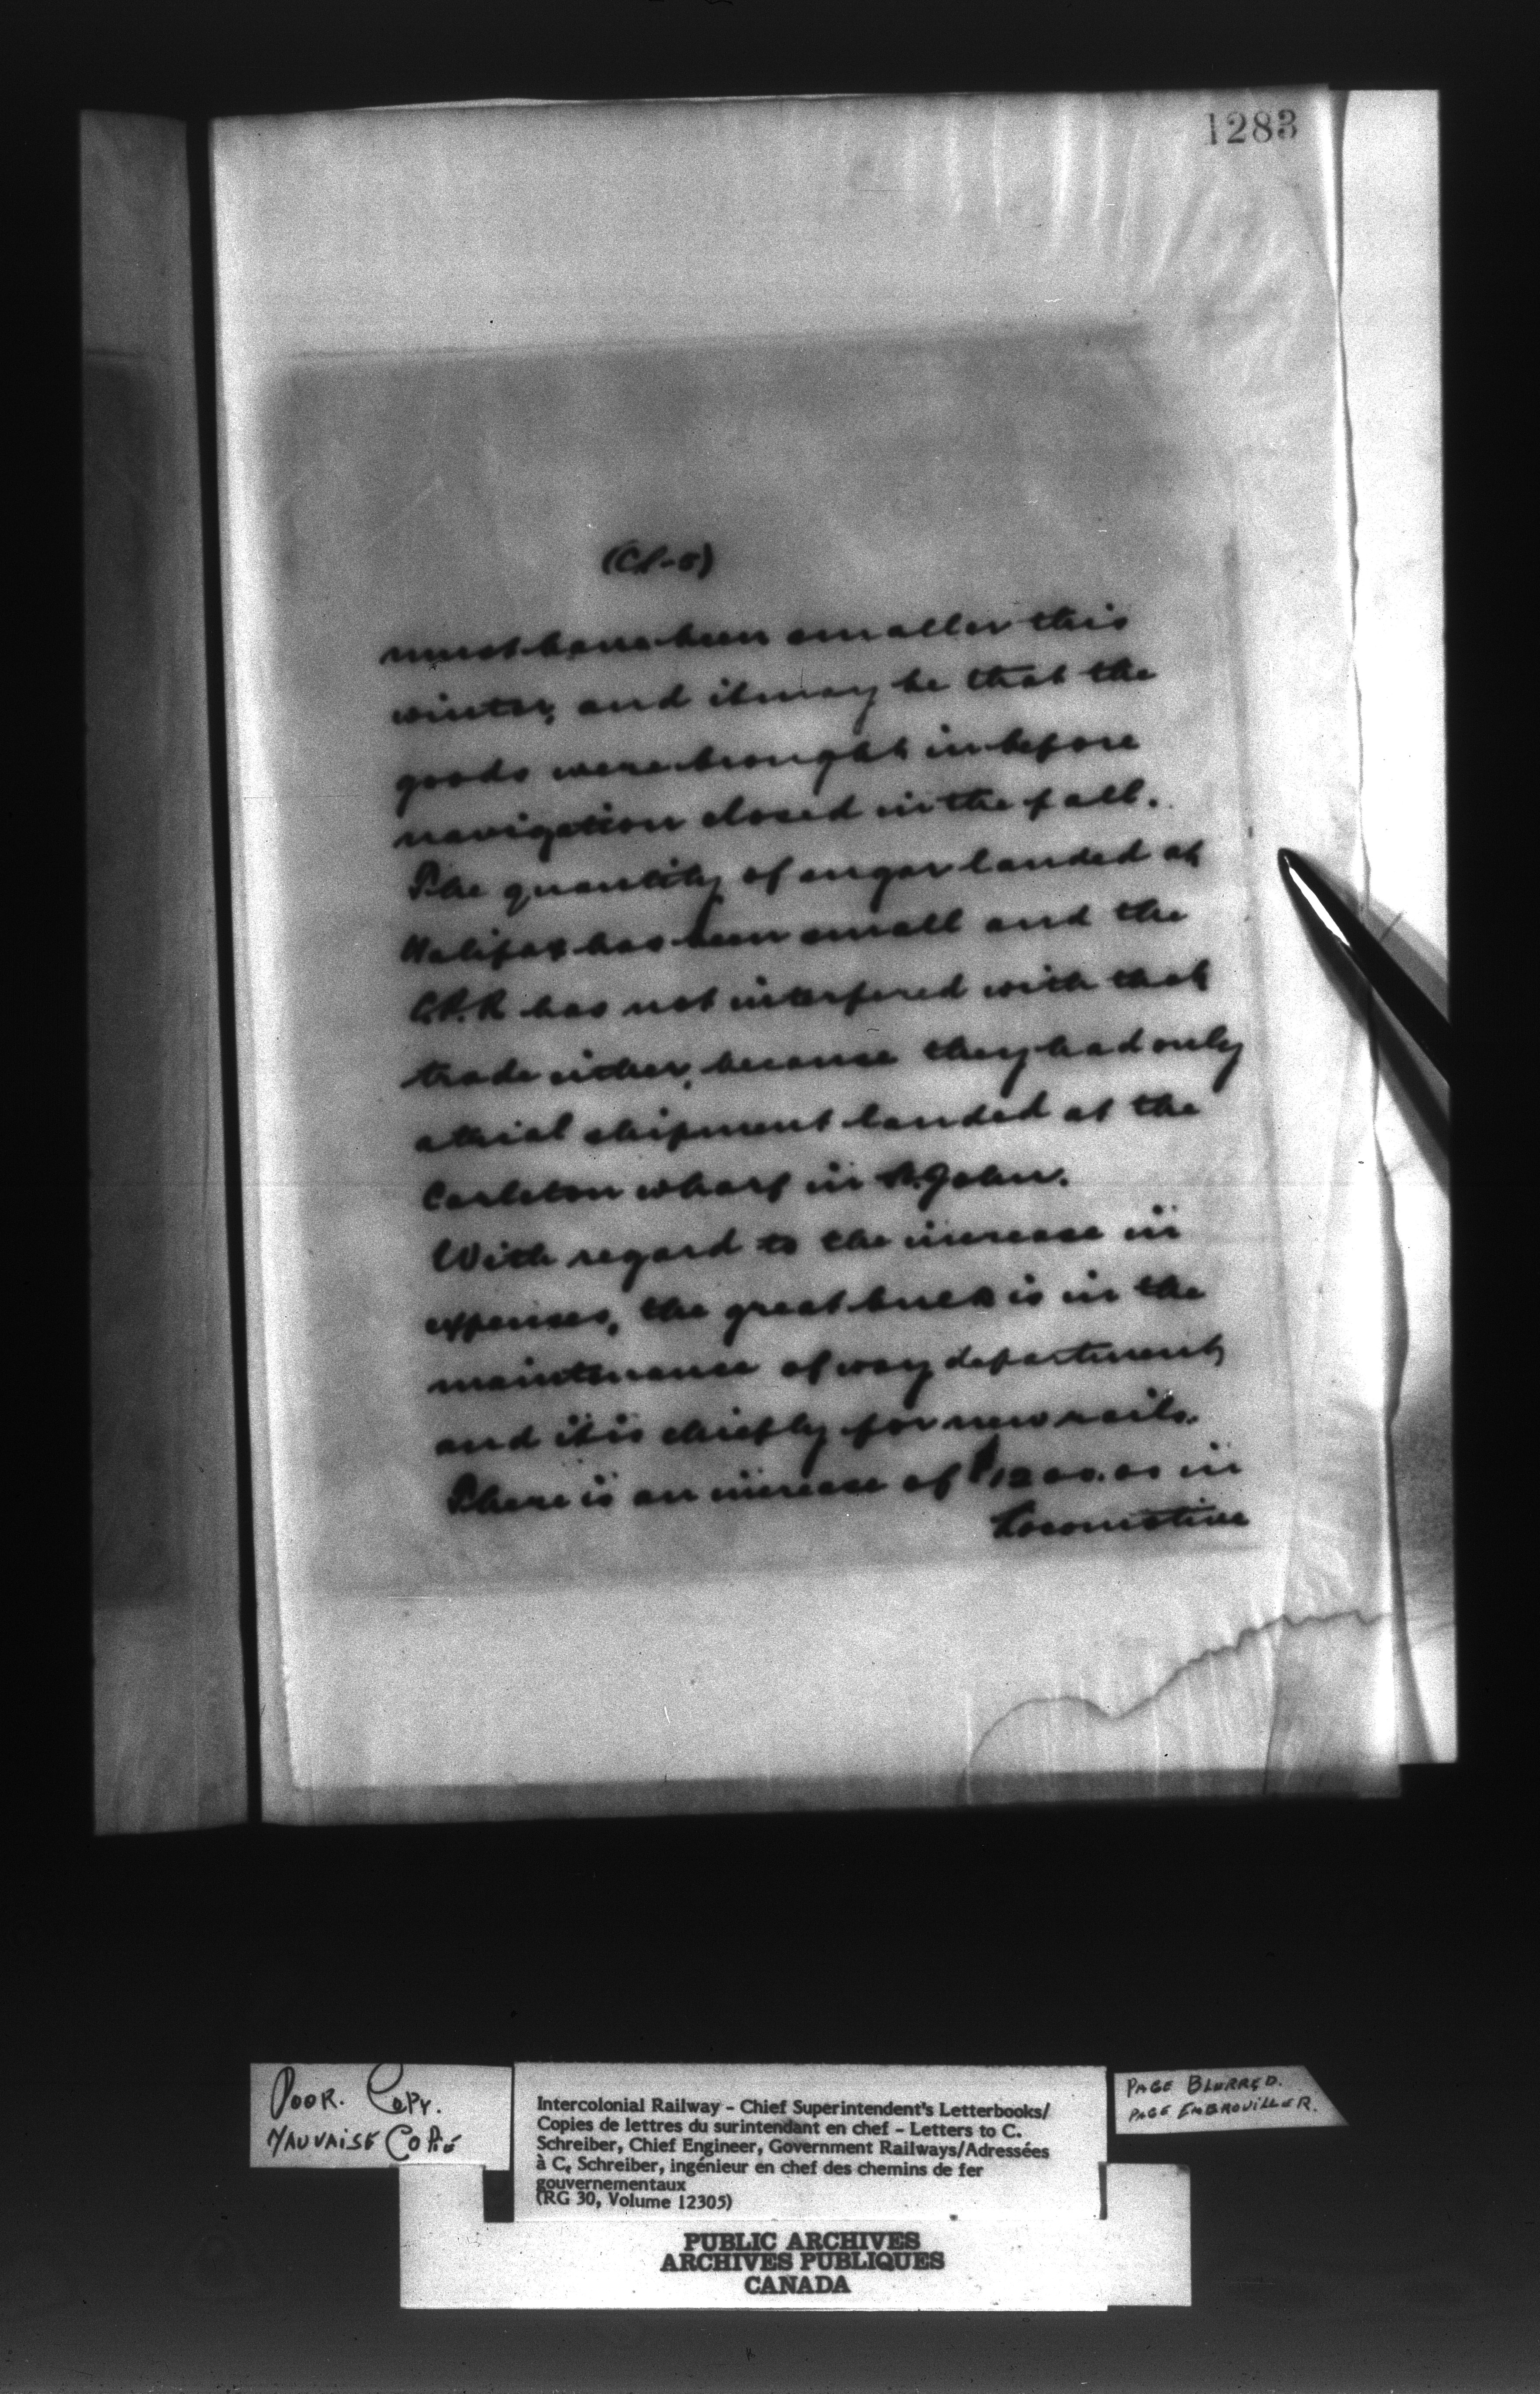 1283
must have been smaller this
winter, and it may be that the
goods were brought in before
navigation closed in the fall.
The quantity of sugar landed at
Halifax has been small and the
C.P.R has not interfered with that
trade either, because they had only
a trial shipment landed at the
Carleton wharf in St. John.
With regard to the increase in
expenses, the great bulk is in the
maintenance of way department
and it is chiefly for new rails.
There is an increase of $1200.00 in
Locomotive
POOR. COPY.
MAUVAISE COPIE
Intercolonial Railway - Chief Superintendent's Letterbooks/
Copies de lettres du surintendant en chef - Letters to C.
Schreiber, Chief Engineer, Government Railways/Adressées
à C. Schreiber, ingénieur en chef des chemins de fer
gouvernementaux
(RG 30, Volume 12305)
PAGE BLURRED.
PAGE EMBROUILLER.
PUBLIC ARCHIVES
ARCHIVES PUBLIQUES
CANADA